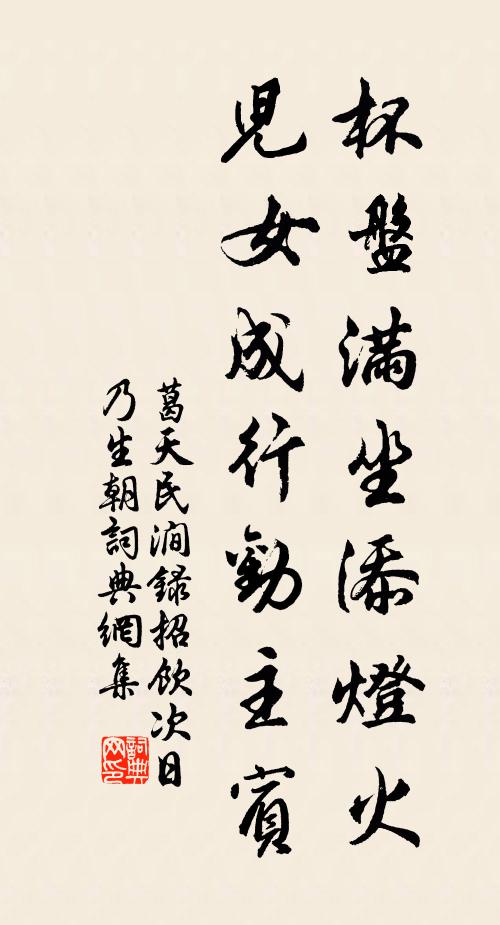 杯盤滿坐添燈火
兒女成行勸主賓
葛天民澗録招飲次日
乃生朝詞典網集
詞典
网印